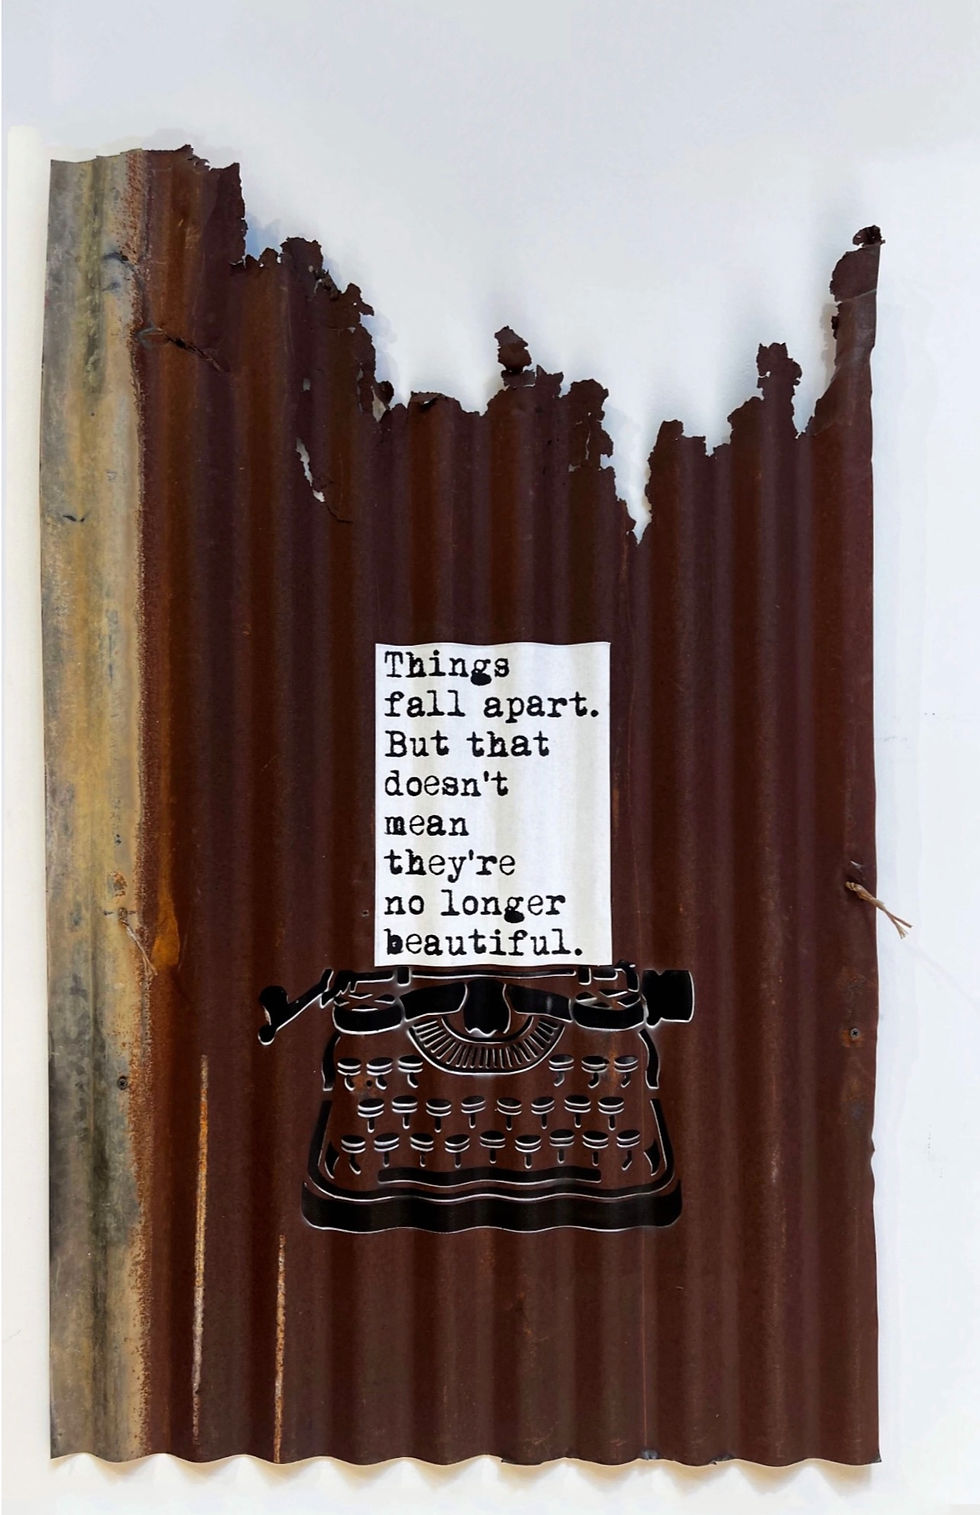 Things
fall apart.
But that
doesn't
mean
they're
no longer
beautiful.